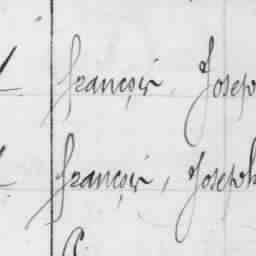 françois, Josep
françois, Joseph